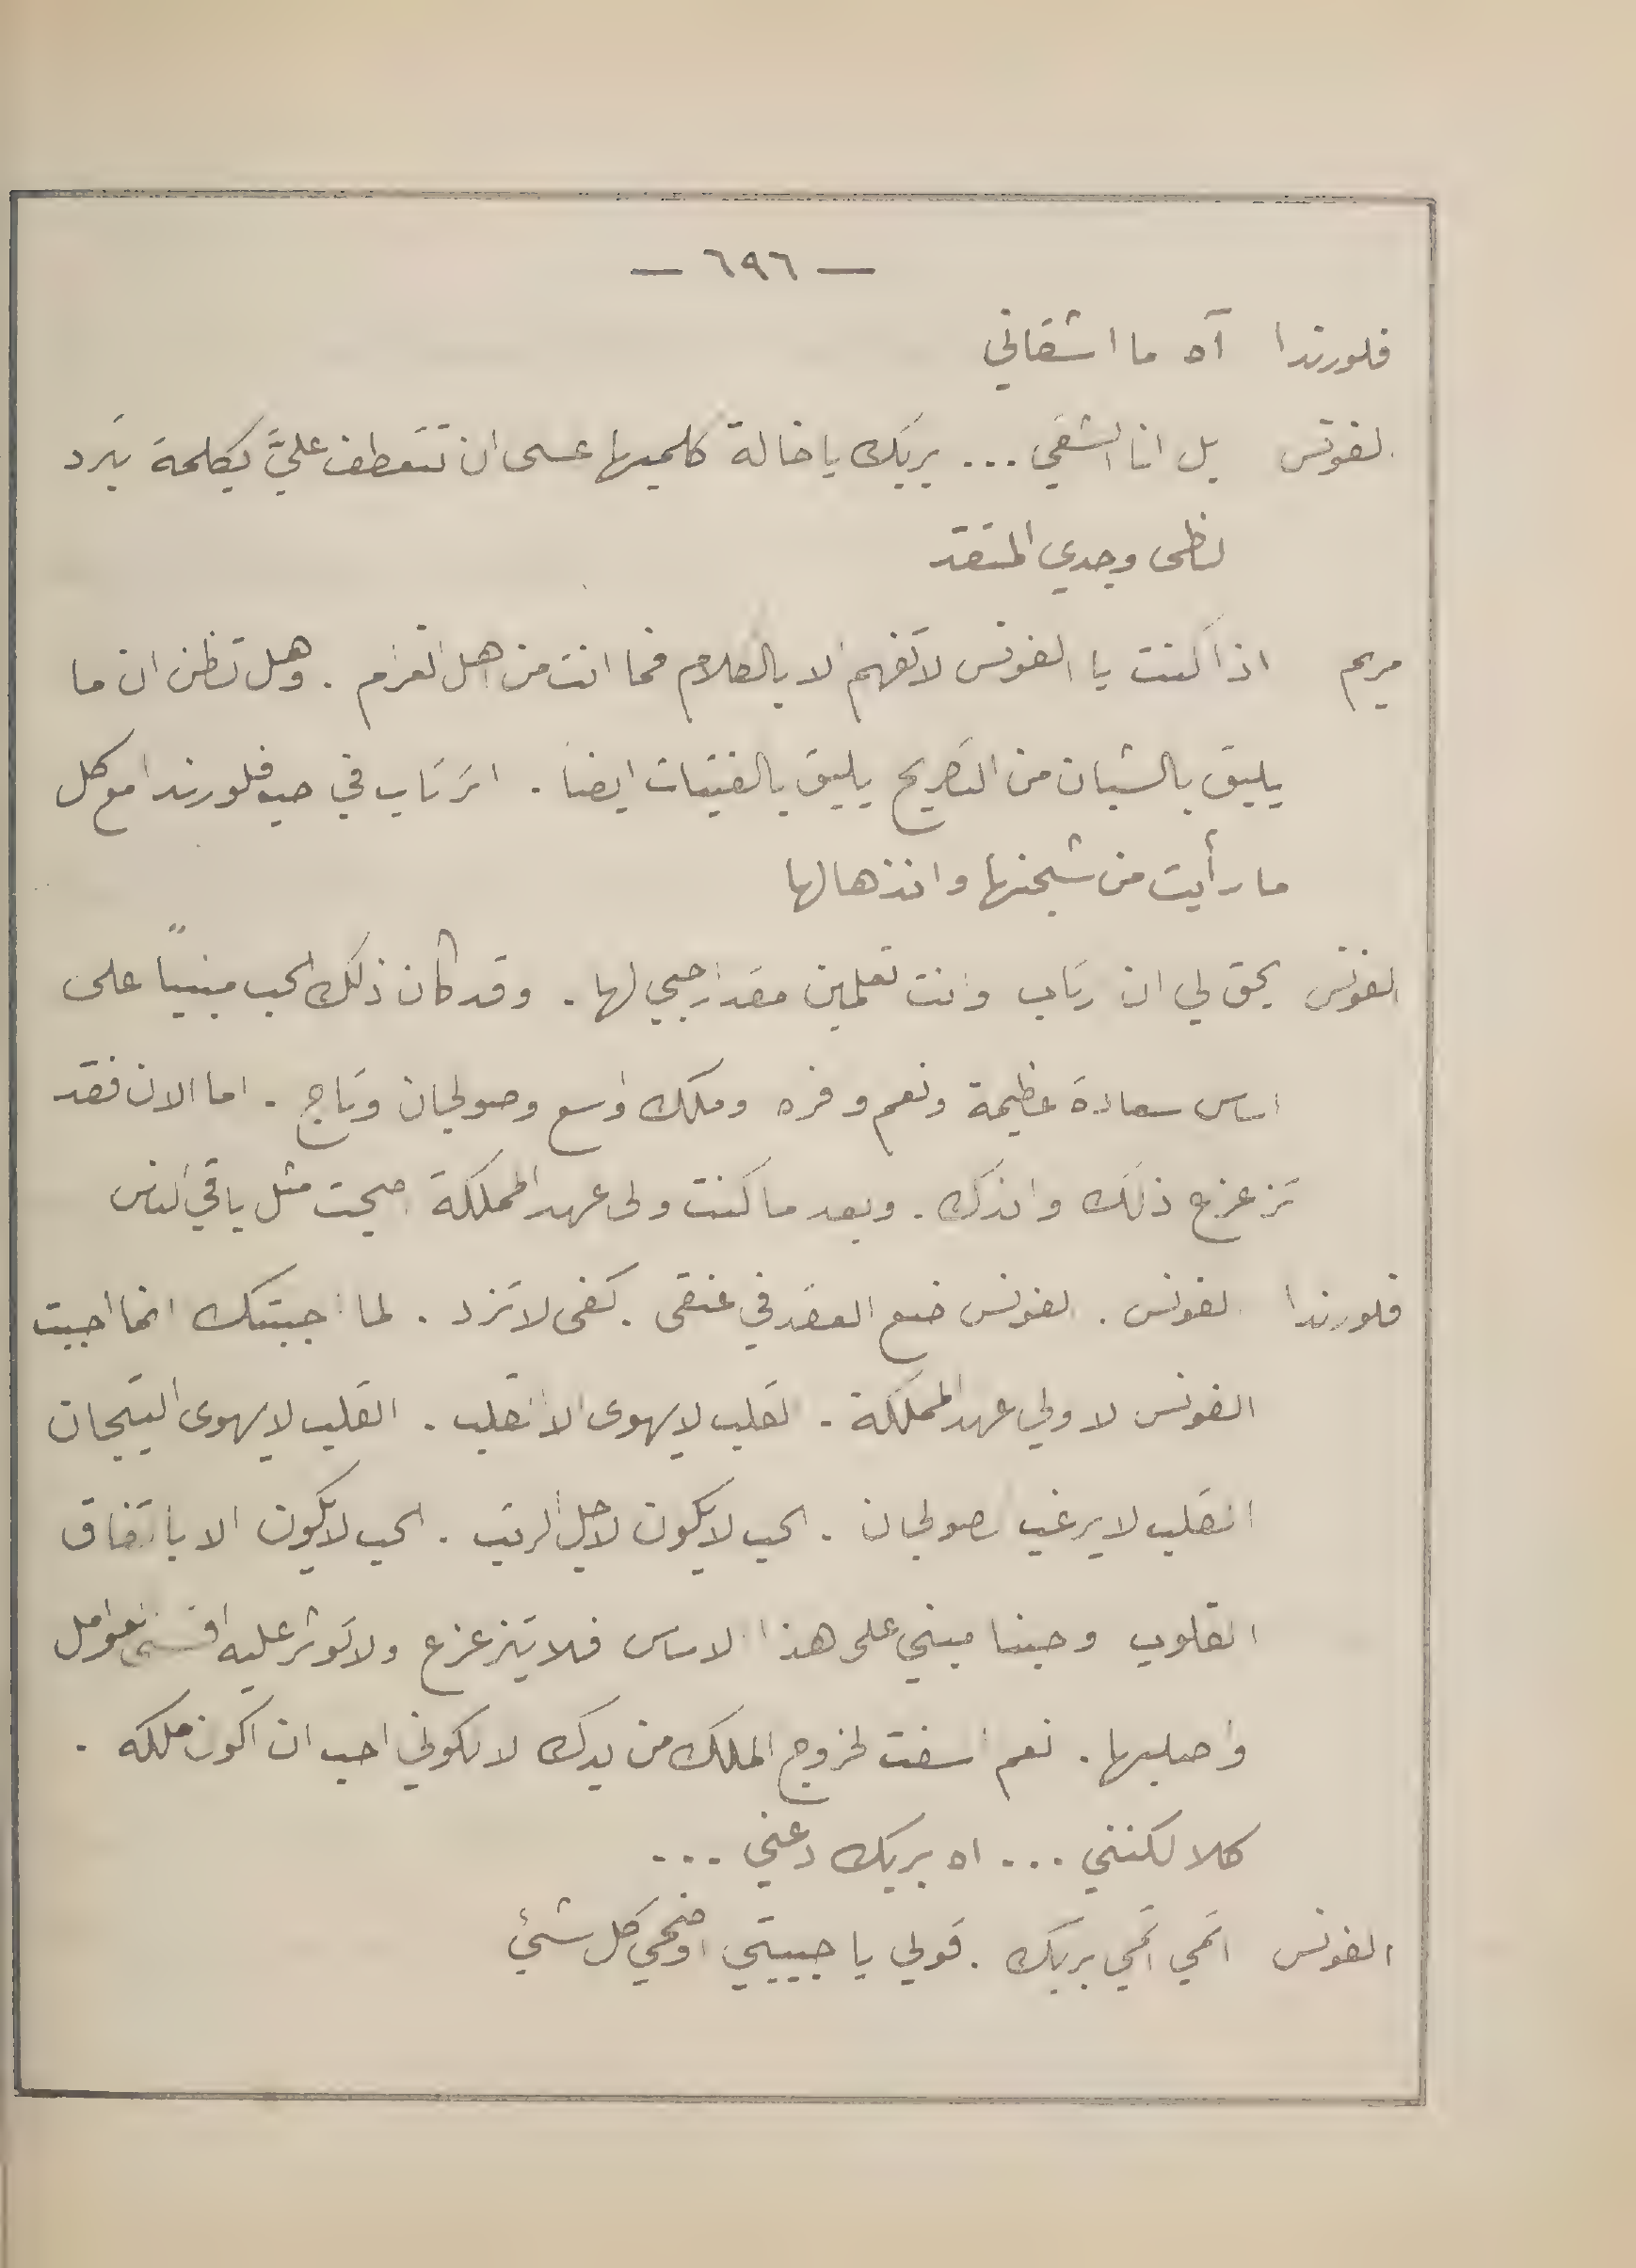 — ٦٩٦ —
فلورندا آه ما اشقاني
الفونس بل انا الشقي ... بربك يا خالة كلميها عسى ان تتعطف عليَّ بكلمة تبرد
لظى وجدي المتقد
مريم اذا كنت يا الفونس لا تفهم الا بالكلام فما انت من اهل الغرام . وهل تظن ان ما
يليق بالشبان من التصريح يليق بالفتيات ايضا . اترتاب في حب فلورندا مع كل
ما رأيت من شجنها وانذهالها
الفونس يحق لي ان ارتاب وانت تعلمين مقدار حبي لها . وقد كان ذلك الحب مبنياً على
اساس سعادة عظيمة ونعم وفره وملك واسع وصولجان وتاج . اما الان فقد
تزعزع ذلك واندك . وبعد ما كنت ولى عهد المملكة اصبحت مثل باقي الناس
فلورندا الفونس . الفونس ضع العقد في عنقى . كفى لا تزد . لما احببتك انما احببت
الفونس لا ولي عهد المملكة . القلب لا يهوى الا القلب . القلب لا يهوى التيجان
القلب لا يرغب بصولجان . الحب لا يكون لاجل الرتب . الحب لا يكون الا باتفاق
القلوب وحبنا مبني على هذا الاساس فلا يتزعزع ولا تؤثر عليه اقسى العوامل
واصلبها . نعم اسفت لخروج الملك من يدك لا لكوني احب ان اكون ملكه .
كلا لكنني ... اه بربك دعني ...
الفونس اتمي اتمي بربك . قولي يا حبيبتي اوضحي كل شئ